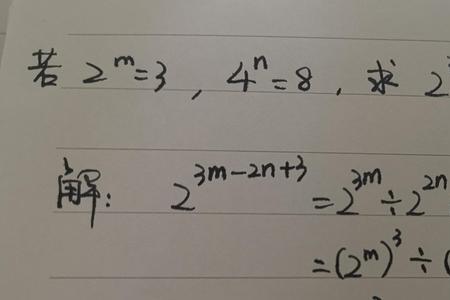 若 2^m=3, 4^n=8, 求 2
解: 2^{3m-2n+3} = 2^{3m} ÷ 2^{2n}
= (2^m)^3 ÷ (